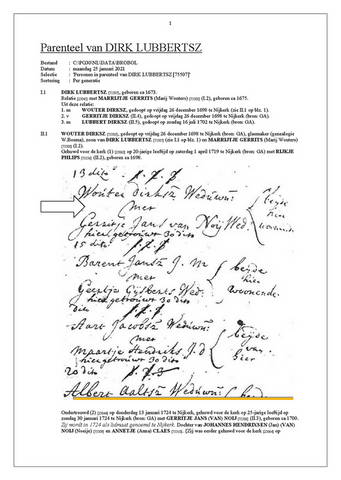 1
Parenteel van DIRK LUBBERTSZ
Bestand : C:\PG30\NL\DATA\BROBOL
Datum : maandag 25 januari 2021
Selectie : Personen in parenteel van DIRK LUBBERTSZ [75507]
Sortering : Per generatie
I.1 DIRK LUBBERTSZ, geboren ca 1673.
Relatie met MARRIJTJE GERRITS (Marij Wouters) (I.2), geboren ca 1675.
Uit deze relatie:
1. m WOUTER DIRKSZ, gedoopt op vrijdag 26 december 1698 te Nijkerk (zie II.1 op blz. 1).
2. v GERRITJE DIRKSZ (II.4), gedoopt op vrijdag 26 december 1698 te Nijkerk (bron: GA).
3. m LUBBERT DIRKSZ (II.5), gedoopt op zondag 16 juli 1702 te Nijkerk (bron: GA).
II.1 WOUTER DIRKSZ, gedoopt op vrijdag 26 december 1698 te Nijkerk (bron: GA), glasmaker (genealogie
W.Bosma), zoon van DIRK LUBBERTSZ (zie I.1 op blz. 1) en MARRIJTJE GERRITS (Marij Wouters)
(I.2).
Gehuwd voor de kerk (1) op 20-jarige leeftijd op zaterdag 1 april 1719 te Nijkerk (bron: GA) met RIJKJE
PHILIPS (II.2), geboren ca 1698.
13 dito
Wouter Dirksz Weduwn:
met
Gerritje Jans van Noij Wed.
beijde
hier
hier getrouwt 30 dito
15 dito
Barent Jansz J. m
met
Geertje Gijsberts Wed:
beijde
hier
woonende
hier getrouwt 30 dito
dito
Aart Jacobsz Weduwn:
met
Maartje Hendriks J. d
beijde
van
hier
hier getrouwt 30 dito
20 dito
Albert Aaltsz Weduwn:
Ondertrouwd (2) op donderdag 13 januari 1724 te Nijkerk, gehuwd voor de kerk op 25-jarige leeftijd op
zondag 30 januari 1724 te Nijkerk (bron: GA) met GERRITJE JANS (VAN) NOIJ (II.3), geboren ca 1700.
Zij wordt in 1724 als lidmaat genoemd te Nijkerk. Dochter van JOHANNES HENDRIKSEN (Jan) (VAN)
NOIJ (Nooije) en ANNETJE (Anna) CLAES. {Zij was eerder gehuwd voor de kerk op